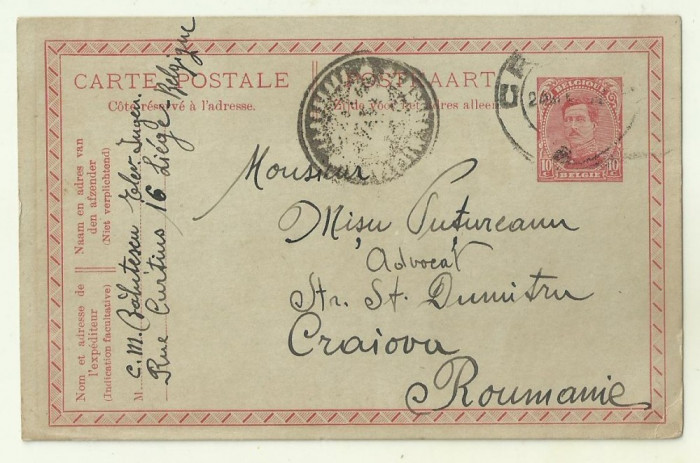 CARTE POSTALE
POSTKAART
Côté réservé à l'adresse.
Zijde voor het adres alleen
BELGIQUE
10 c 10 c
BELGIË
Monsieur
Misu Putureanu
Advocat
Str. St. Dumitru
Craiova
Roumanie
Naam en adres van
den afzender
(Niet verplichtend)
Nom et adresse de
l'expéditeur
(Indication facultative)
M
C. M. Elev Ingen.
Rue Curtius 16 Liége Belgique